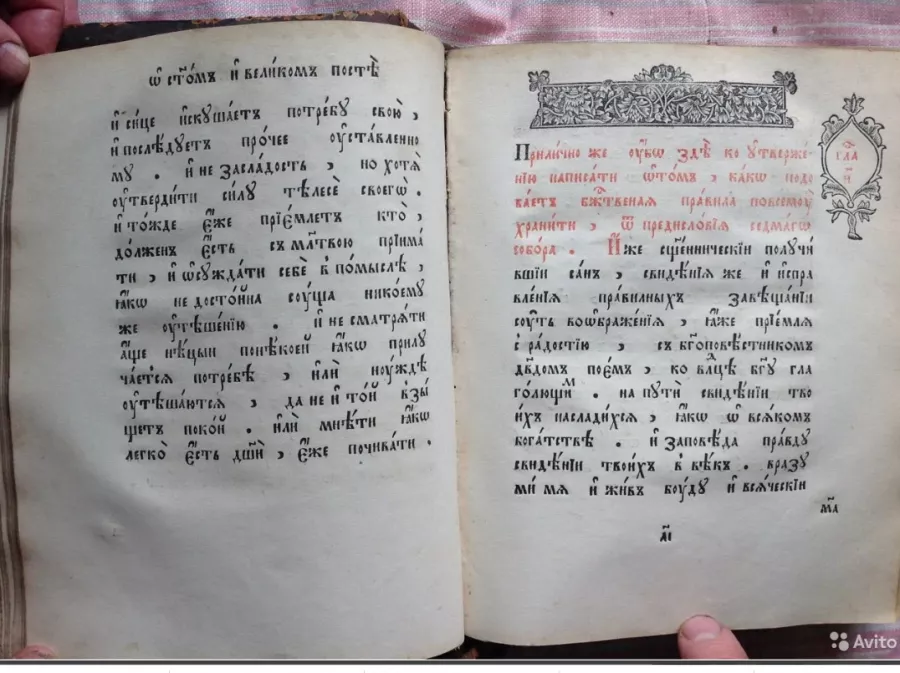 Ѡ҆ ст҃о́мъ и҆ вели́комъ постѣ̀
и҆ си́це и҆скуша́етъ потре́бу свою̀,
и҆ послѣ́дуетъ про́чее оу҆ста́вленно
му . и҆ не засла́дость , но хотѧ̀
оу҆тверди́ти си́лу тѣ́лесѐ своегѡ̀ .
и҆ то́жде є҆́же прїе́млетъ кто̀ ,
до́лженъ є҆́сть съ мл҃твою прїима́
ти , и҆ ѡ҆сужда́ти себѐ в по́мыслѣ ,
ꙗ҆́кѡ недосто́йна соу́ща нико́ему
же оу҆тѣше́нїю . и҆ не сматрѧ́ти
а҆́ще нѣ́цыи понѣ́коей ꙗ҆́кѡ прилу
ча́етсѧ потре́бѣ , и҆лѝ ноу́ждѣ
оу҆тѣша́ютсѧ , да не и҆ то́й взы́
щетъ поко́й . и҆лѝ мнѣ́ти ꙗ҆́кѡ
легко̀ є҆́сть дш҃и , є҆́же почива́ти .
Прили́чно же оу҆́бѡ здѣ̀ ко оу҆твержє́
нїю написа́ти ѡ҆то́мъ , ка́кѡ подо
ва́етъ бж҃твеная пра́вила повсемоу̀
храни́ти , ѿ предисло́вїѧ седма́гѡ
собо́ра . И҆́же сщ҃е́нническїи получи́
вшїи са́нъ , свидѣ́нїѧ же и҆ и҆спра
вле́нїѧ пра́вилныхъ завѣща́нїи
соу́ть воѡ҆браже́нїѧ , ꙗ҆́же прїе́млѧ
с ра́достїю , съ бг҃оповѣ́стникомъ
дв҃домъ пое́мъ , ко влⷣцѣ бг҃у гла
го́лющиⷨ . на путѝ свидѣ́нїи тво
и҆́хъ насладихсѧ , ꙗ҆́кѡ ѡ҆ всѧ́комъ
бога́тствѣ . и҆ заповѣ́да пра́вду
свидѣ́нїи твои́хъ в вѣ́къ . вразу
мѝ мѧ и҆ жи́въ боу́ду и҆ всѧ́ческїи
гла
и҃